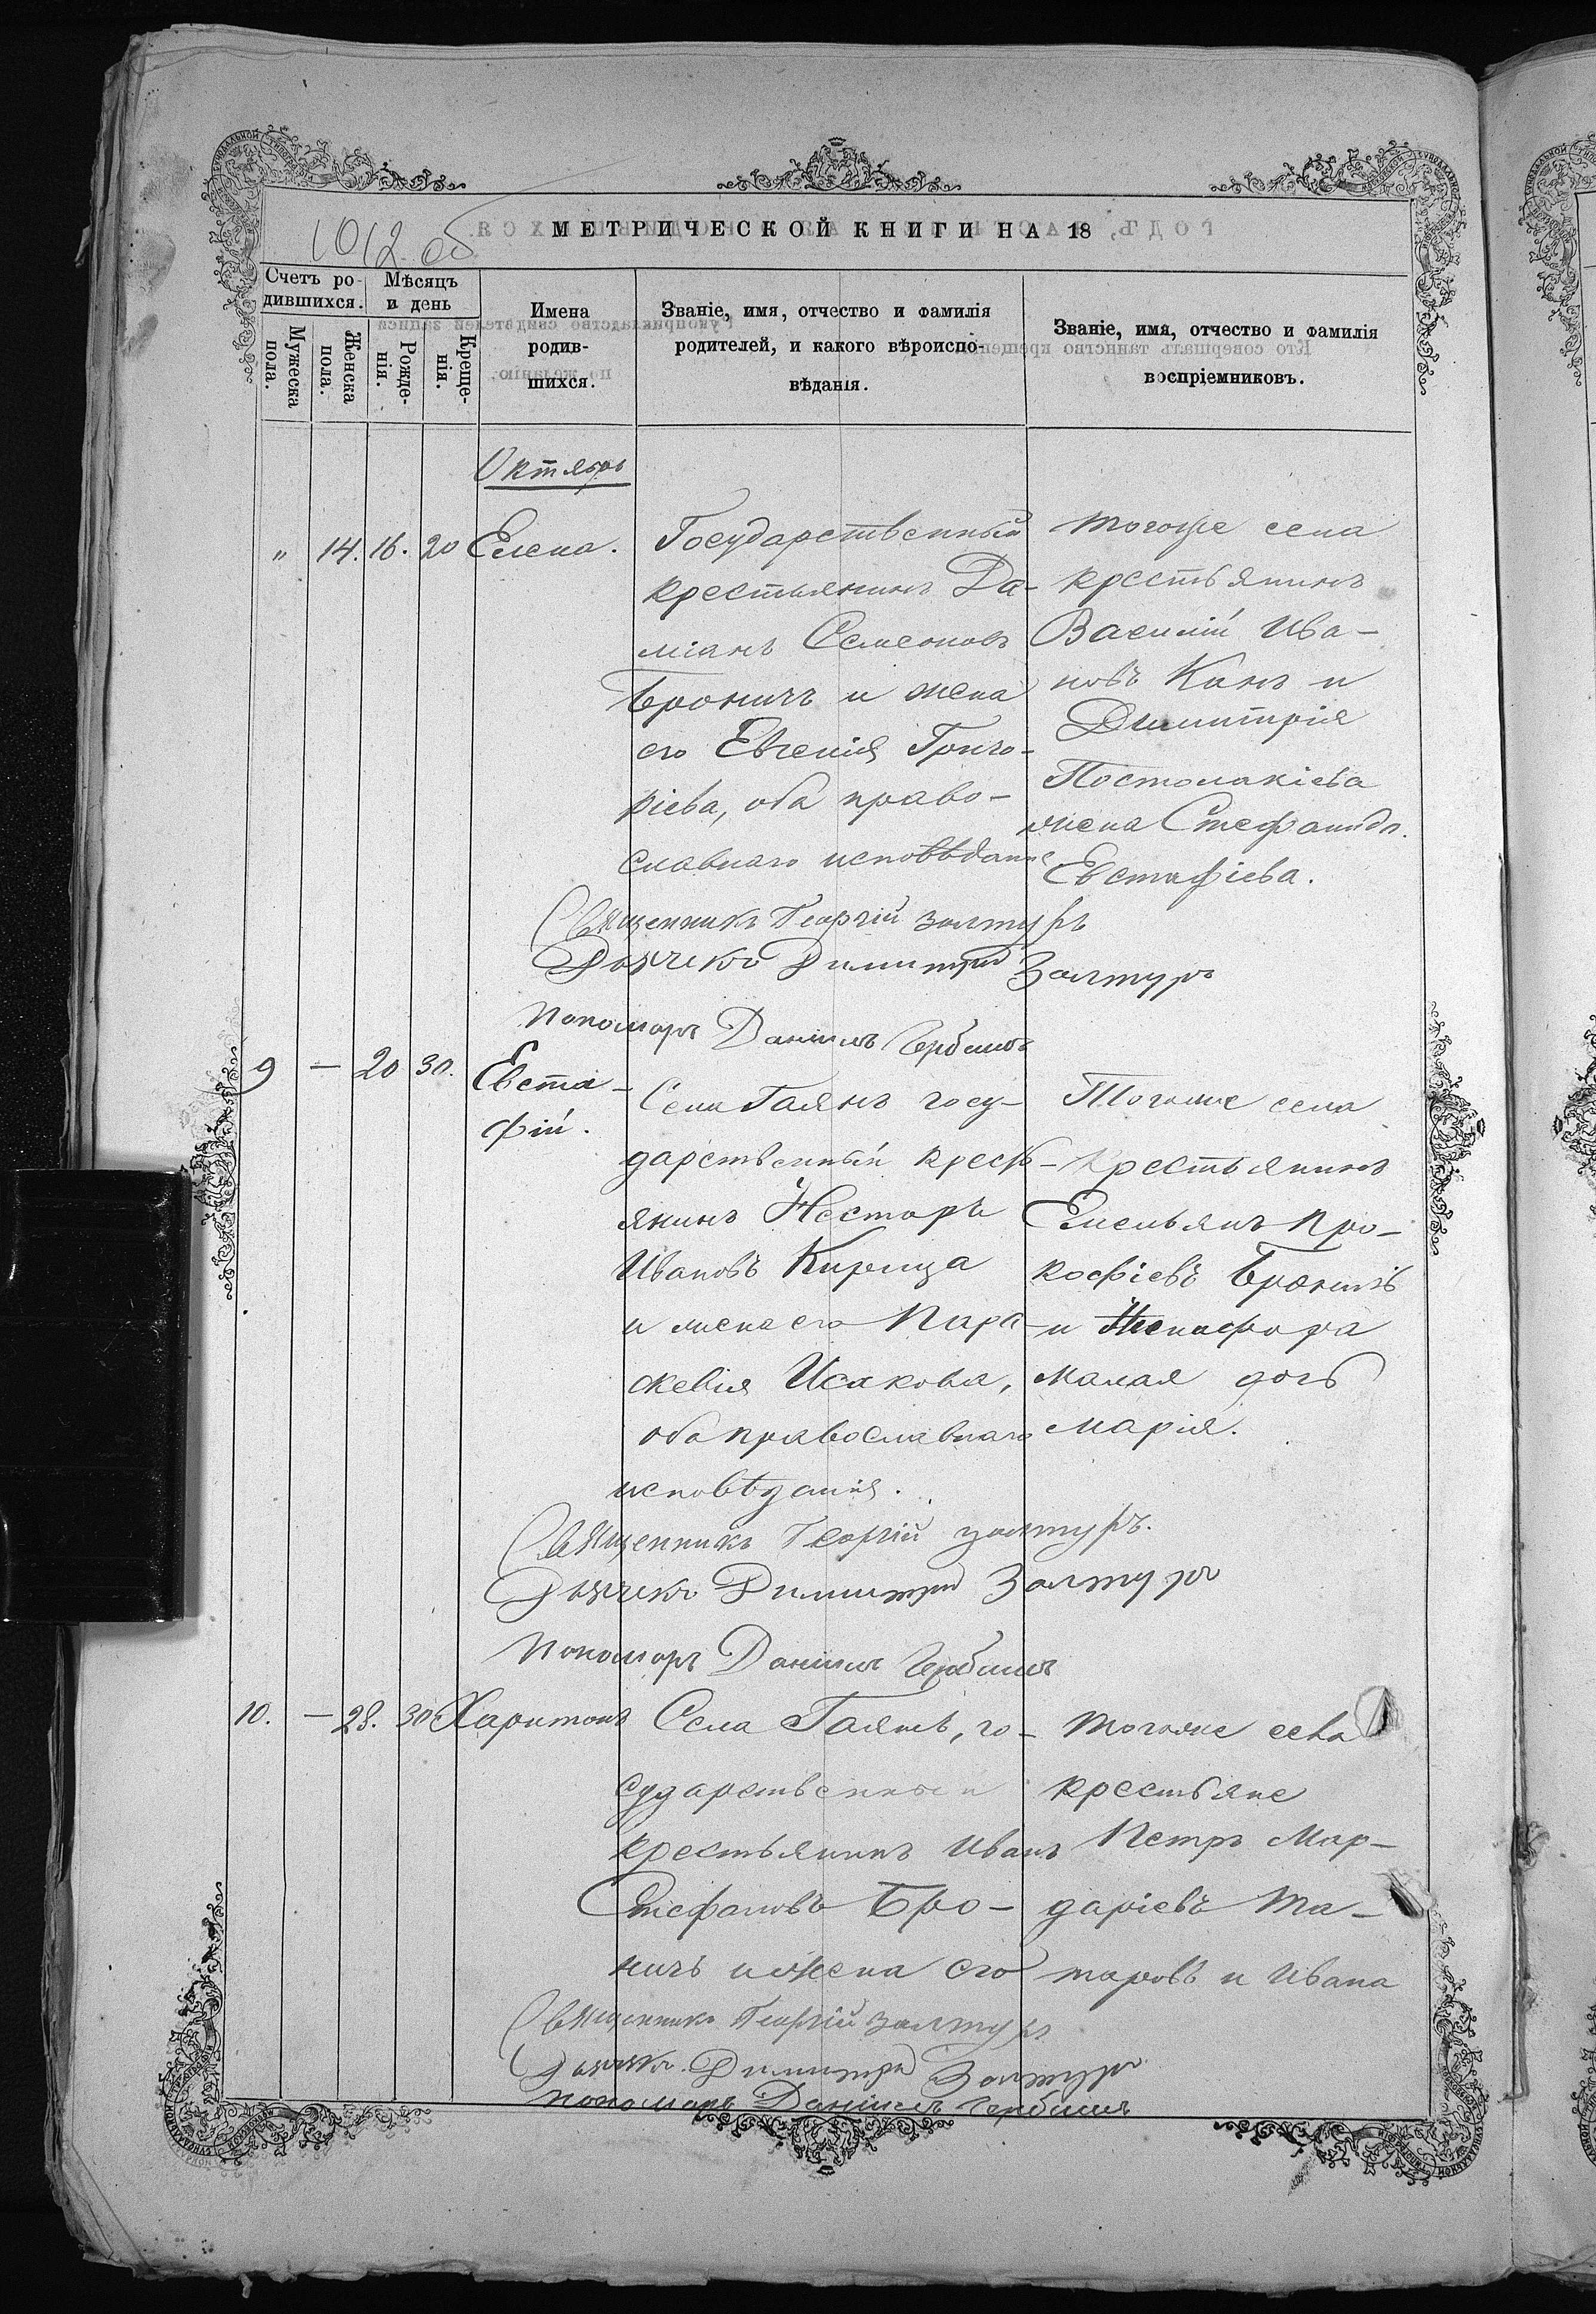 1012 об
МЕТРИЧЕСКОЙ КНИГИ НА 18
Счетъ ро-
дившихся.
Мѣсяцъ
и день
Мужеска
пола.
Женска
пола.
Рожде-
нія.
Креще-
нія.
Имена
родив-
шихся.
Званіе, имя, отчество и фамилія
родителей, и какого вѣроиспо-
вѣданія.
Званіе, имя, отчество и фамилія
воспріемниковъ.
Октябрь
" 14. 16. 20 Елена.
Государственный
крестьянинъ Да-
міанъ Семеоновъ
Броничъ и жена
его Евгенія Григо-
ріева, оба право-
славнаго исповѣданія
тогоже села
крестьянинъ
Василій Ива-
новъ Канъ и
Димитрія
Постолакіева
жена Стефанида
Евстафіева.
Священникъ Георгій Залтуръ
Дьячекъ Димитрій Залтуръ
Пономарь Даніилъ
9 — 20 30.
Евста-
фій.
Села Галянъ госу-
дарственный крестъ-
янинъ Несторъ
Ивановъ Кирица
и жена его Пара-
скевія Исакова,
оба православнаго
исповѣданія.
Тогоже села
крестьянинъ
Емельянъ Про-
кофіевъ Броничъ
и Никифора
Малая дочь
Марія.
Священникъ Георгій Залтуръ.
Дьячекъ Димитрій Залтуръ
Пономарь Даніилъ
10. — 28. 30 Харитонъ
Села Галянъ, го-
сударственный
крестьянинъ Иванъ
Стефановъ Бро-
ничъ и жена его
тогоже села
крестьяне
Петръ Мар-
даріевъ Та-
таровъ и Ивана
Священникъ Георгій Залтуръ
Дьячекъ Димитрій Залтуръ
Пономарь Даніилъ